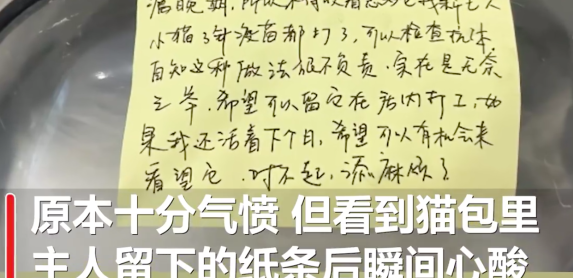 小猫3针疫苗都打了,可以检查抗体
自知这种做法很不负责,实在是无奈
之举,希望可以留它在店内打工,如
果我还活着下个月,希望可以有机会来
看望它,对不起,添麻烦了
原本十分气愤 但看到猫包里
主人留下的纸条后瞬间心酸